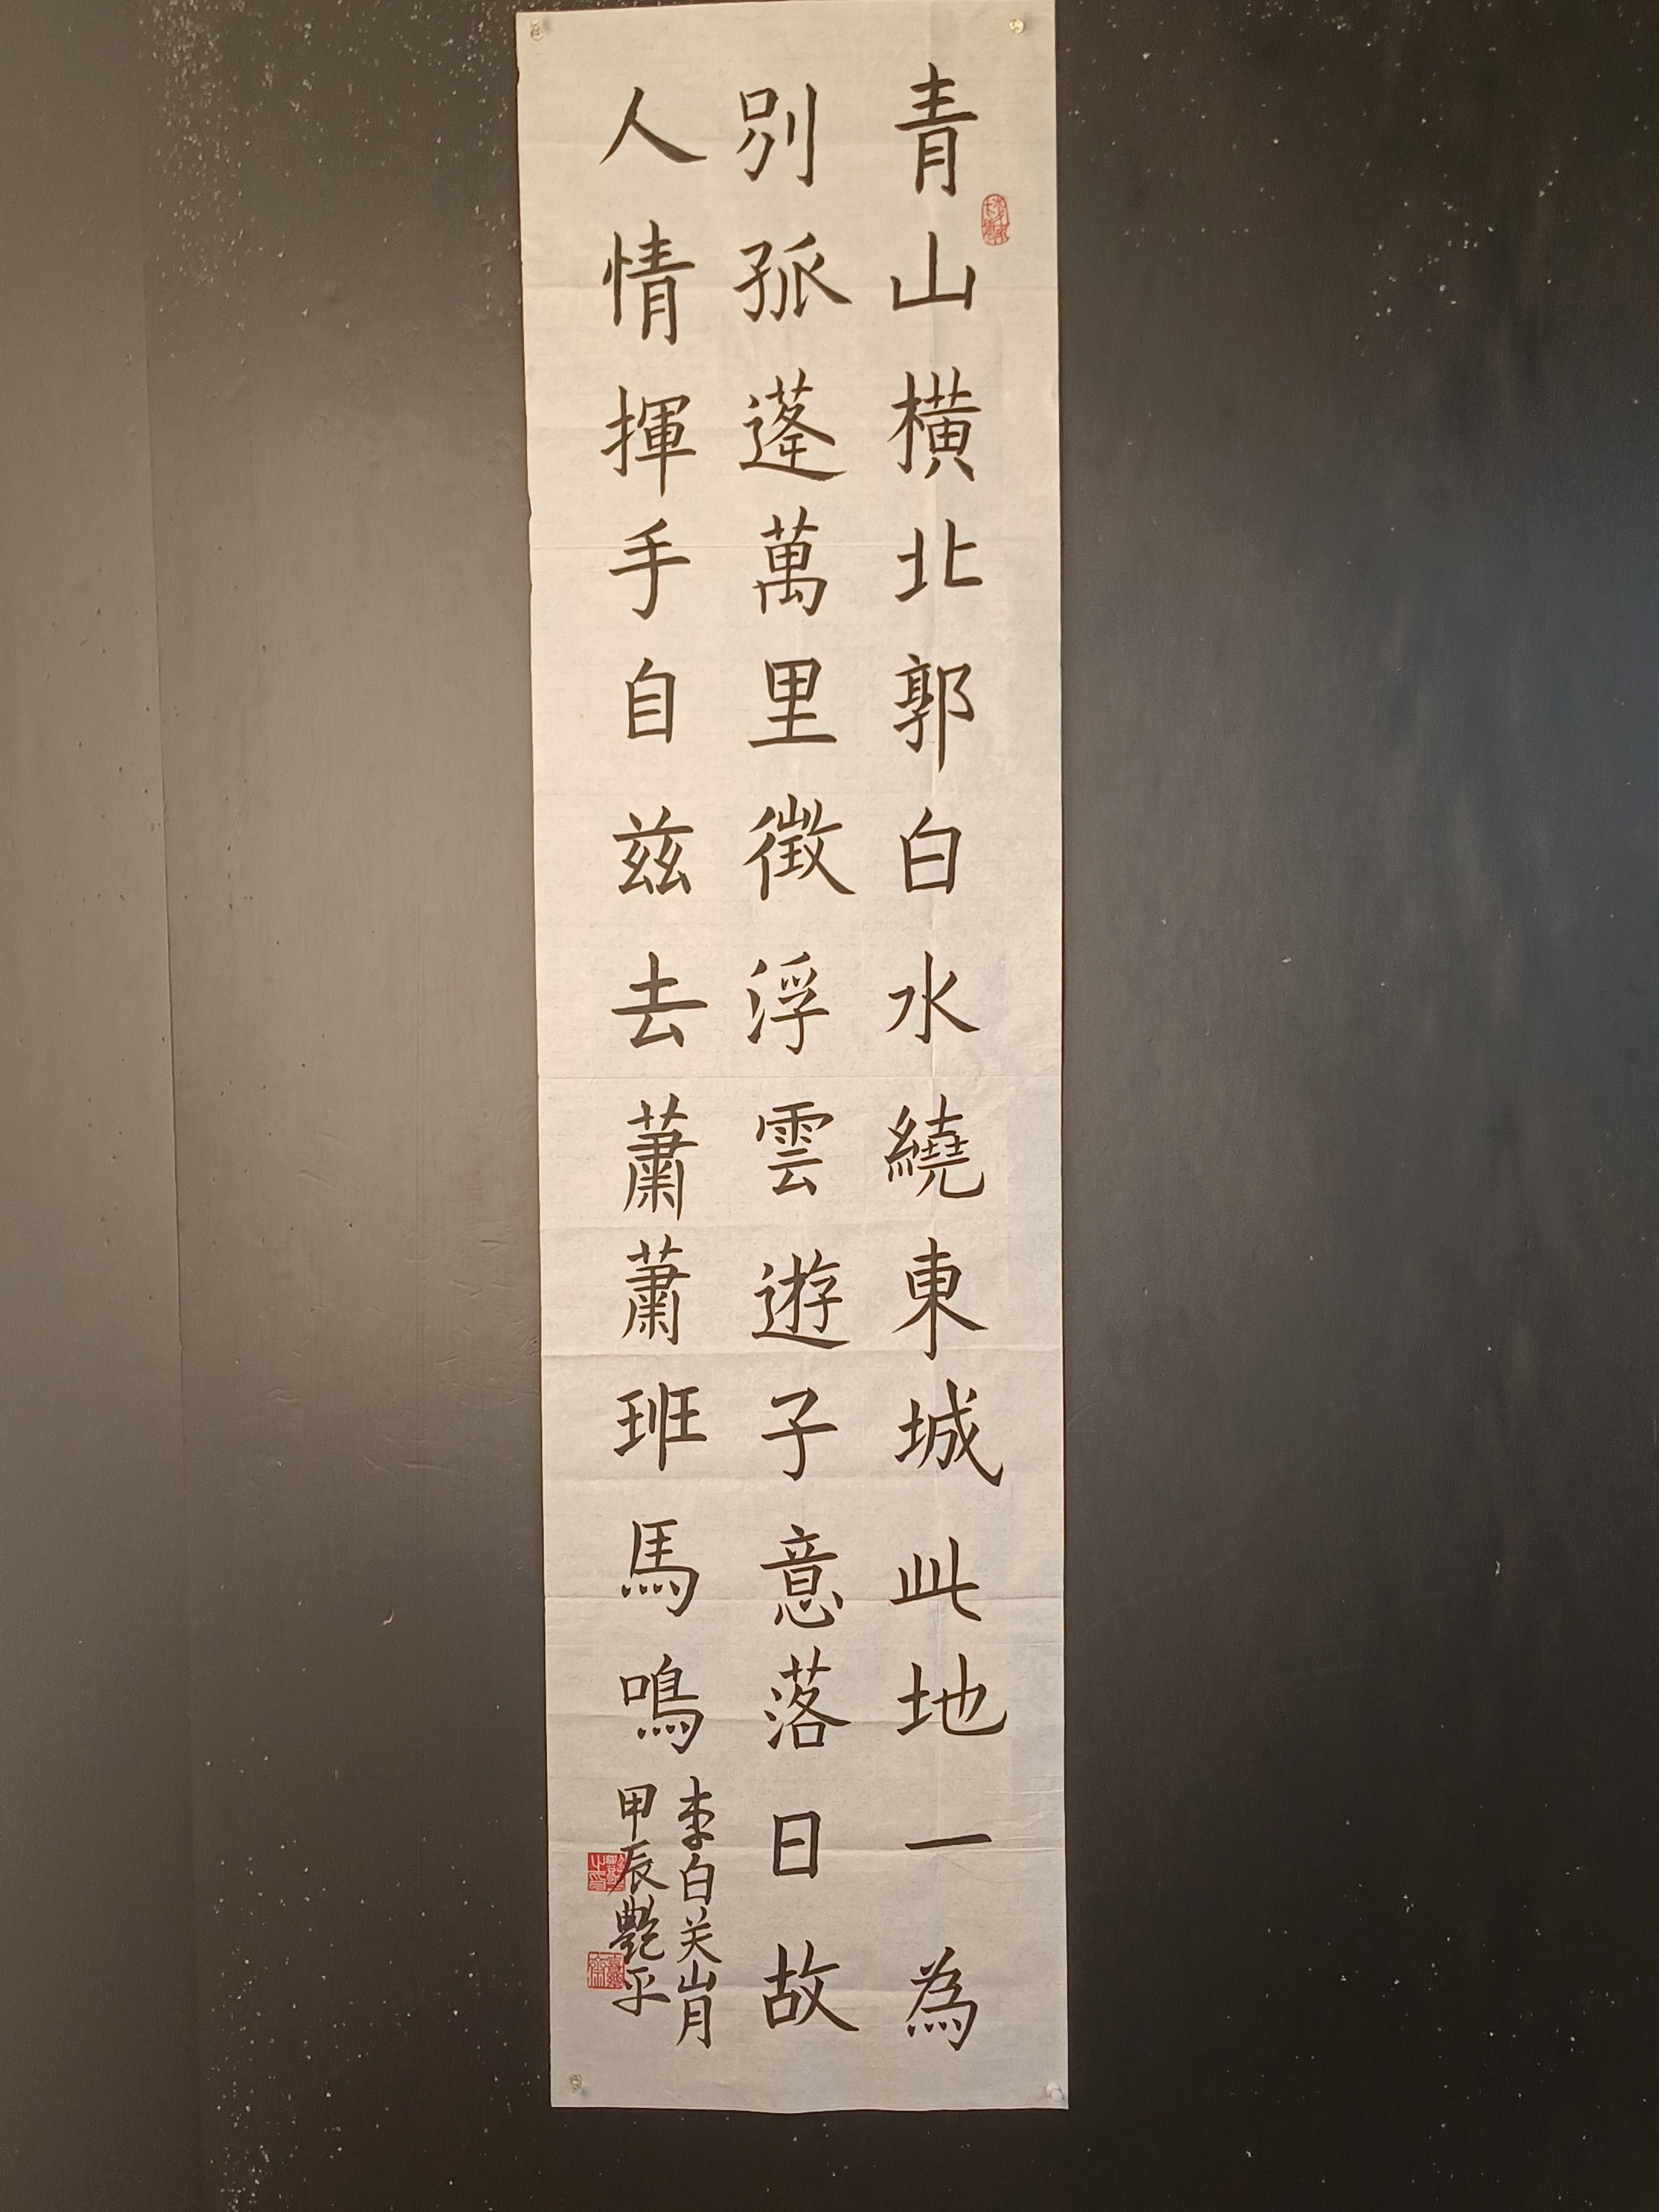 青山橫北郭白水繞東城此地一為
別孤蓬萬里徴浮雲遊子意落日故
人情揮手自兹去蕭蕭班馬鳴
李白关山月
甲辰艷平